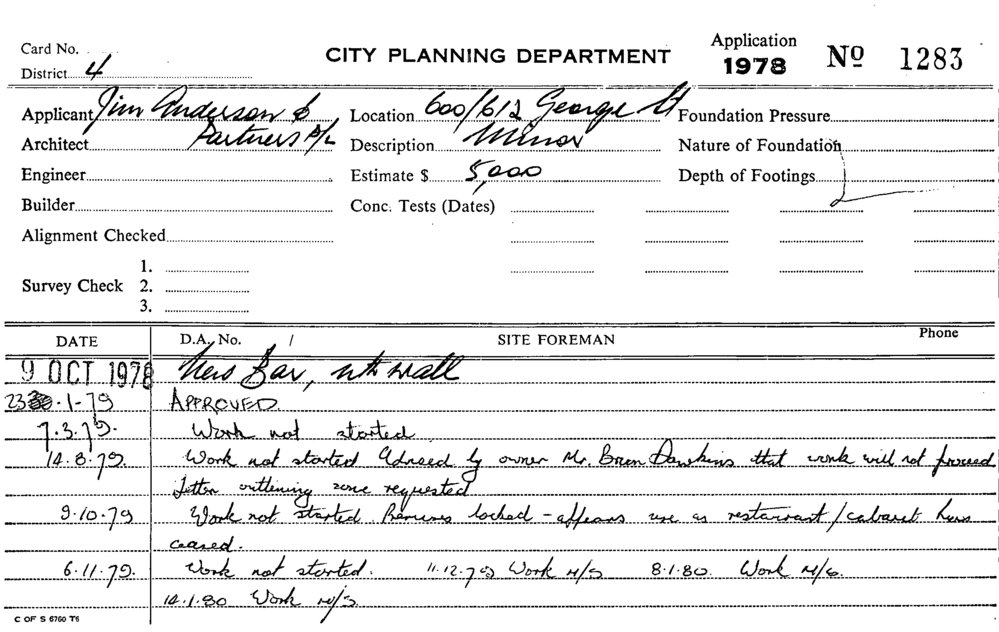 Card No.
CITY PLANNING DEPARTMENT
Application 1978 Nº 1283
District 4
Applicant Jim Anderson & Partners P/L
Location 600/612 George St
Foundation Pressure
Architect
Description Minor
Nature of Foundation
Engineer
Estimate $ 5,000
Depth of Footings
Builder
Conc. Tests (Dates)
Alignment Checked
Survey Check 1.
2.
3.
DATE D.A. No. / SITE FOREMAN Phone
9 OCT 1978 New Bar, nth wall
23.1-79 APPROVED.
7.3.79. Work not started
14.8.79. Work not started Advised by owner Mr. Brian Dawkins that work will not proceed
Letter outlining requested
9.10.79 Work not started. Premises locked - appears use as restaurant / cabaret has
ceased.
6.11.79. Work not started. 11.12.79 Work N/S 8.1.80. Work N/S.
14.1.80 Work N/S.
C OF S 6760 T6